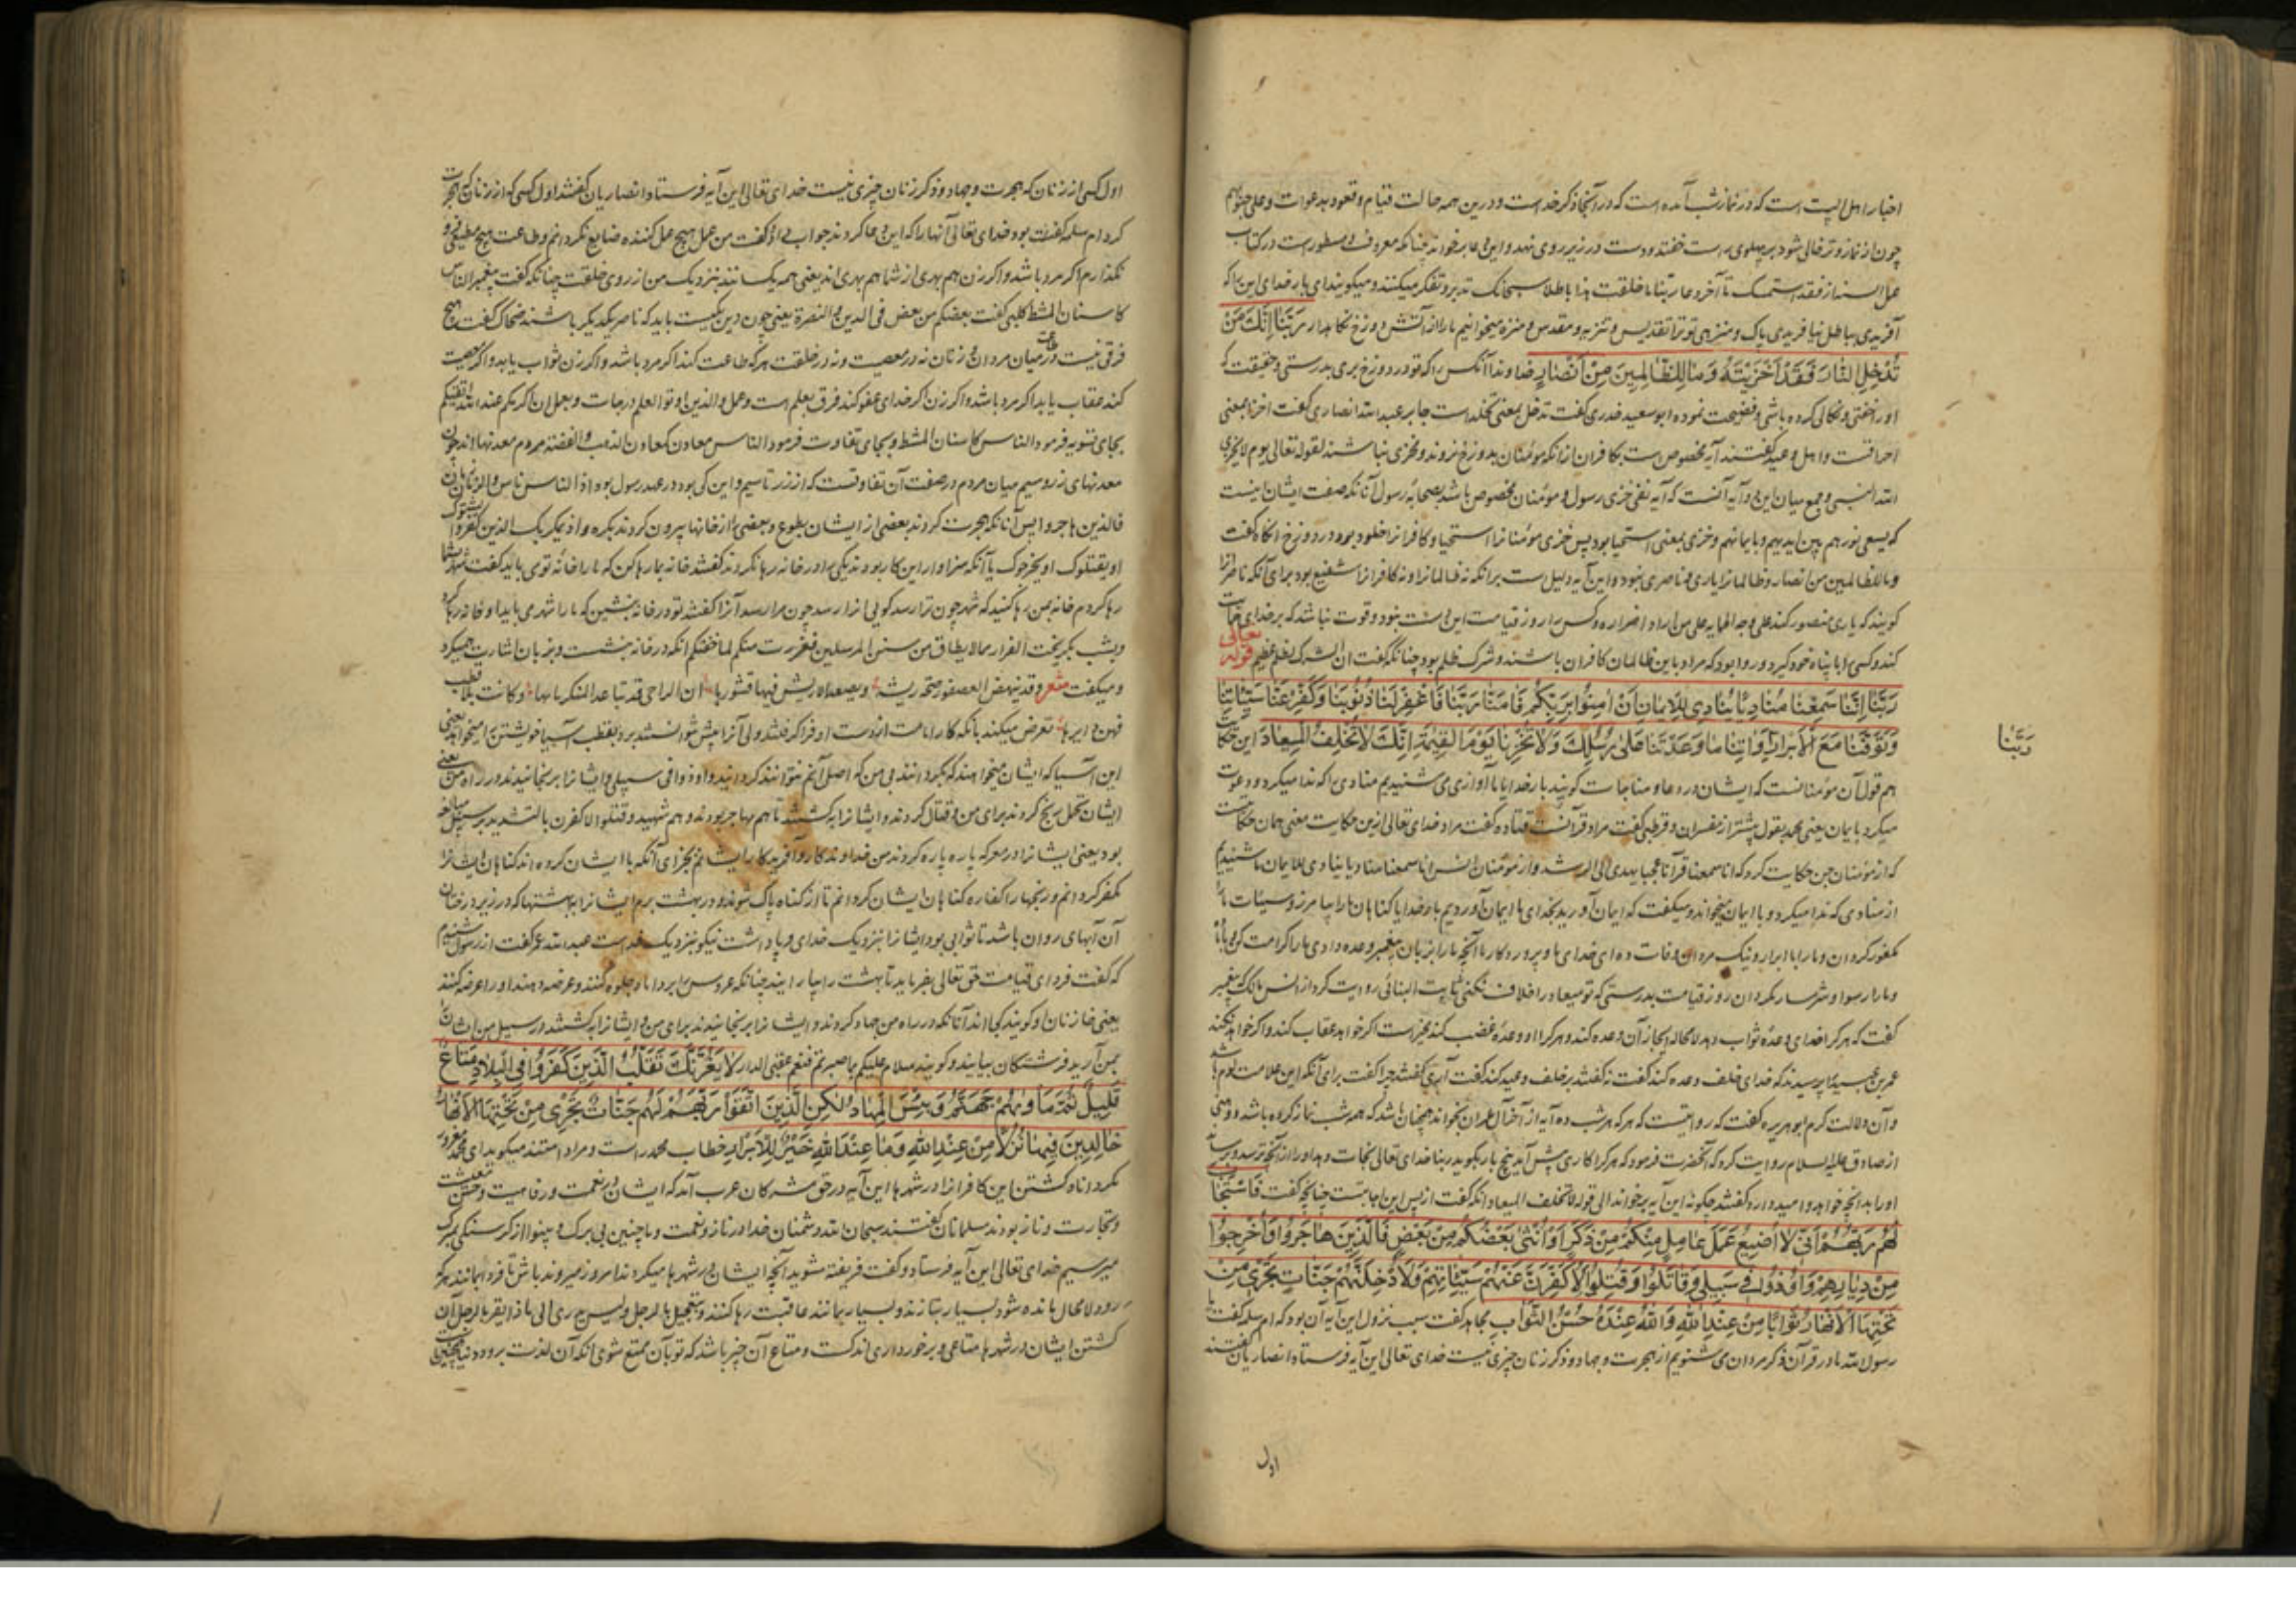 اخبار اهل البیت است که در نماز شب آمده است که در آنجا ذکر خداست و درین همه حالت قیام و قعود بدعوات و علی جنوبهم
چون از نماز وتر خالی شود بر پهلوی راست خفته و دست در زیر روی نهد و این دعا بر خواند چنانکه معروف و مسطور است در کتاب
عمل السنة از فقد استمسک تا آخر دعا ربنا ما خلقت هذا باطلا سبحانک تدبر و تفکر میکنند و میکویند ای بار خدای این را که
آفریدی بباطل نیافریدی پاک و منزهی تو ترا تقدیس و تنزیه و مقدس و منزه میخوانیم ما را از آتش دوزخ نکاهدار رَبَّنَا إِنَّكَ مَنْ
تُدْخِلِ النَّارَ فَقَدْ أَخْزَيْتَهُ وَمَا لِلظَّالِمِينَ مِنْ أَنْصَارٍ خداوندا آنکس را که تو در دوزخ بری بدرستی و حقیقت که
او را خفتی و نکالی کرده باشی و فضیحت نموده ابو سعید خدری گفت تدخل بمعنی تخلد است جابر عبد الله انصاری گفت اخزا بمعنی
احراقت و اهل وعید گفتند آیه مخصوص است بکافران از آنکه مؤمنان بدوزخ نروند و مخزی نباشند لقوله تعالی یوم لا یخزی
الله النبی و جمع میان این دو آیه آنست که آیه نفی خزی رسول و مؤمنان مخصوص باشد بصحابه رسول آنانکه صفت ایشان اینست
که یسعی نورهم بین ایدیهم و بایمانهم و خزی بمعنی استحیا بود پس خزی مؤمنانرا استحیا و کافرانرا خلود بود در دوزخ انکاه گفت
و ما للظالمین من انصار و ظالمانرا یاری و ناصری نبود و این آیه دلیل است بر آنکه نه ظالمانرا و نه کافرانرا شفیع بود برای آنکه ناصر آنرا
کویند که یاری منصور کند علی وجه الحمایه علی من اراد اضراره و کس را روز قیامت این منت نبود و قوت نباشد که بر خدای حمایت
کند و کسی را با پناه خود کیرد و روا بود که مراد باین ظالمان کافران باشند و شرک ظلم بود چنانکه گفت ان الشرک لظلم عظیم قوله تعالی
رَبَّنَا إِنَّنَا سَمِعْنَا مُنَادِيًا يُنَادِي لِلْإِيمَانِ أَنْ آمِنُوا بِرَبِّكُمْ فَآمَنَّا رَبَّنَا فَاغْفِرْ لَنَا ذُنُوبَنَا وَكَفِّرْ عَنَّا سَيِّئَاتِنَا
وَتَوَفَّنَا مَعَ الْأَبْرَارِ رَبَّنَا وَآتِنَا مَا وَعَدْتَنَا عَلَى رُسُلِكَ وَلَا تُخْزِنَا يَوْمَ الْقِيَمَةِ إِنَّكَ لَا تُخْلِفُ الْمِيعَادَ این حکایت
هم قول آن مؤمنانست که ایشان در دعا و مناجات کویند بار خدایا ما آوازی می شنیدیم منادی را که ندا میکرد و دعوت
میکرد بایمان یعنی محمد بقول بیشتر از مفسران و قرظی گفت مراد قرآنست قتاده گفت مراد خدای تعالی ازین حکایت معنی همان حکایتست
که از مؤمنان جن حکایت کرد که انا سمعنا قرآنا عجبا یهدی الی الرشد و از مؤمنان انس انا سمعنا منادیا ینادی للایمان ما شنیدیم
از منادی که ندا میکرد و با ایمان میخواند و میکفت که ایمان آورید بخدای ما ایمان آوردیم بار خدایا کناهان ما را بیامرز و سیئات ما
مکفور کردان و ما را با ابرار و نیک مردان وفات ده ای خدای ما و پروردکار ما آنچه ما را بر زبان پیغمبر وعده دادی ما را کرامت کن
و ما را رسوا و شرمسار مکردان روز قیامت بدرستی که تو میعاد را خلاف نکنی ثابت البنانی روایت کرد از انس مالک که پیغمبر
گفت که هر کرا خدای وعده ثواب دهد لا محاله ایجاز آن وعده کند و هر کرا او وعده غضب کند مخیر است اکر خواهد عقاب کند و اکر خواهد نکند
عمر بن عبید را پرسیدند که خدای خلف وعده کند گفت نه گفتند بر خلف وعید کند گفت آری گفتند چرا گفت برای آنکه این علامت لوم باشد
و آن دلالت کرم ابو هریره گفت که روایتست که هر که هر شب ده آیه از آخر آل عمران بخواند همچنان باشد که همه شب نماز کرده باشد
از صادق علیه السلام روایت کرد که آنحضرت فرمود که هر کرا کاری پیش آید پنج بار بکوید ربنا خدای تعالی نجات دهد او را از آنچه ترسد و برساند
او را بدانچه خواهد و امید دارد گفتند چکونه این آیه بر خواند الی قوله لا تخلف المیعاد انکه گفت از پس این اجابتست چنانچه گفت فَاسْتَجَابَ
لَهُمْ رَبُّهُمْ أَنِّي لَا أُضِيعُ عَمَلَ عَامِلٍ مِنْكُمْ مِنْ ذَكَرٍ أَوْ أُنْثَى بَعْضُكُمْ مِنْ بَعْضٍ فَالَّذِينَ هَاجَرُوا وَأُخْرِجُوا
مِنْ دِيَارِهِمْ وَأُوذُوا فِي سَبِيلِي وَقَاتَلُوا وَقُتِلُوا لَأُكَفِّرَنَّ عَنْهُمْ سَيِّئَاتِهِمْ وَلَأُدْخِلَنَّهُمْ جَنَّاتٍ تَجْرِي مِنْ
تَحْتِهَا الْأَنْهَارُ ثَوَابًا مِنْ عِنْدِ اللَّهِ وَاللَّهُ عِنْدَهُ حُسْنُ الثَّوَابِ مجاهد گفت سبب نزول این آیه آن بود که ام سلمه گفت یا
رسول الله ما در قرآن ذکر مردان می شنویم از هجرت و جهاد و ذکر زنان چیزی نیست خدای تعالی این آیه فرستاد انصاریان گفتند
رَبَّنَا
اول
اول کسی از زنان که هجرت و جهاد و ذکر زنان چیزی نیست خدای تعالی این آیه فرستاد انصاریان گفتند اول کسی که از زنان که هجرت
کرد ام سلمه گفت بود خدای تعالی آنها را که این دعا کردند جواب داد گفت من عمل هیچ عمل کننده ضایع نکردانم و طاعت هیچ مطیعی فرو
نکذارم اکر مرد باشد و اکر زن هم بهری از شما هم بهری اند یعنی همه یکسانند بنزدیک من از روی خلقت چنانکه گفت پیغمبر الناس
کاسنان المشط کلبی گفت بعضکم من بعض فی الدین و النصرة یعنی چون دین یکیست باید که ناصر یکدیکر باشند ضحاک گفت هیچ
فرقی نیست در طاعت میان مردان و زنان نه در معصیت و نه در خلقت هر که طاعت کند اکر مرد باشد و اکر زن ثواب یابد و اکر معصیت
کند عقاب یابد اکر مرد باشد و اکر زن اکر خدای عفو کند فرق بعلم است و عمل و الذین اوتوا العلم درجات و بعمل ان اکرمکم عند الله اتقیکم
بجای تسویه فرمود الناس کاسنان المشط و بجای تفاوت فرمود الناس معادن کمعادن الذهب و الفضة مردم معدنها اند چون
معدنهای زر و سیم میان مردم در صفت آن تفاوتست که از زر تا سیم و این کی بود در عهد رسول بود اذ الناس ناس و الزمان زمان
فالذین هاجروا پس آنانکه هجرت کردند بعضی از ایشان بطوع و بعضی را از خانها بیرون کردند بکره و اذ یمکر بک الذین کفروا لیثبتوک
او یقتلوک او یخرجوک یا آنکه سزاوار این کار بودند یکی را در خانه رها نکردند گفتند خانه بما رها کن که ما را خانه تو می باید گفت شهر بشما
رها کردم خانه بمن رها کنید که شهر چون ترا رسد
و بشب بکریخت الفرار مما لا یطاق من سنن المرسلین ففررت منکم لما خفتکم انکه در خانه بنشست و بزبان اشارت میکرد
و میکفت شعر وقد ینهض العصفور
فهن دایرها تعرض میکند
این آسیا که ایشان میخواهند که بکردانند بی من که اصل آنم نتوانند کردانید و اوذوا فی سبیلی و ایشانرا برنجانیدند در راه من یعنی
ایشان تحمل رنج کردند برای من و قتال کردند و ایشانرا بکشتند تا هم مهاجر بودند و هم شهید و قتلوا لاکفرن بالتشدید بر سبیل مبالغه
بود یعنی ایشانرا در معرکه پاره پاره کردند من خداوند کار و آفریدکار ایشانم بجزای آنکه با ایشان کرده اند کناهان ایشانرا
مکفر کردانم و رنجها را کفاره کناهان ایشان کردانم تا از کناه پاک شوند و در بهشت برم ایشانرا ببهشتها که در زیر درختان
آن آبهای روان باشد تا ثوابی بود ایشانرا بنزدیک خدای و پاداشت نیکو بنزدیک خداست عبد الله عمر گفت از رسول شنیدم
که گفت فردای قیامت حق تعالی بفرماید تا بهشت را بیارایند چنانکه عروس را بر داماد جلوه کنند و عرضه دهند او را عرضه کنند
یعنی خازنان او کویند کجا اند آنانکه در راه من جهاد کردند و ایشانرا برنجانیدند برای من و ایشانرا بکشتند در سبیل من ایشانرا
بمن آرید فرشتکان بیایند و کویند سلام علیکم بما صبرتم فنعم عقبی الدار لَا يَغُرَّنَّكَ تَقَلُّبُ الَّذِينَ كَفَرُوا فِي الْبِلَادِ مَتَاعٌ
قَلِيلٌ ثُمَّ مَأْوَاهُمْ جَهَنَّمُ وَبِئْسَ الْمِهَادُ لَكِنِ الَّذِينَ اتَّقَوْا رَبَّهُمْ لَهُمْ جَنَّاتٌ تَجْرِي مِنْ تَحْتِهَا الْأَنْهَارُ
خَالِدِينَ فِيهَا نُزُلًا مِنْ عِنْدِ اللَّهِ وَمَا عِنْدَ اللَّهِ خَيْرٌ لِلْأَبْرَارِ خطاب محمد راست و مراد امتند میکوید ای محمد مغرور
مکرداناد کشتن این کافرانرا در شهرها این آیه در حق مشرکان عرب آمد که ایشان در نعمت و رفاهیت و حسن معیشت
و تجارت و ناز بودند مسلمانان گفتند سبحان الله دشمنان خدا در ناز و نعمت و ما چنین بی برک و بینوا از کرسنکی بمرک
میرسیم خدای تعالی این آیه فرستاد و گفت فریفته مشوید آنچه ایشان در شهرها میکردند امروز میروند باش تا فردا بمانند هر که
رود لا محال مانده شود بسیار بتازند و بسیار بمانند عاقبت رها کنند
کشتن ایشان در شهرها متاعی و برخورداری اندکست و متاع آن چیز باشد که تو بآن ممتع شوی انکه آن لذت برود